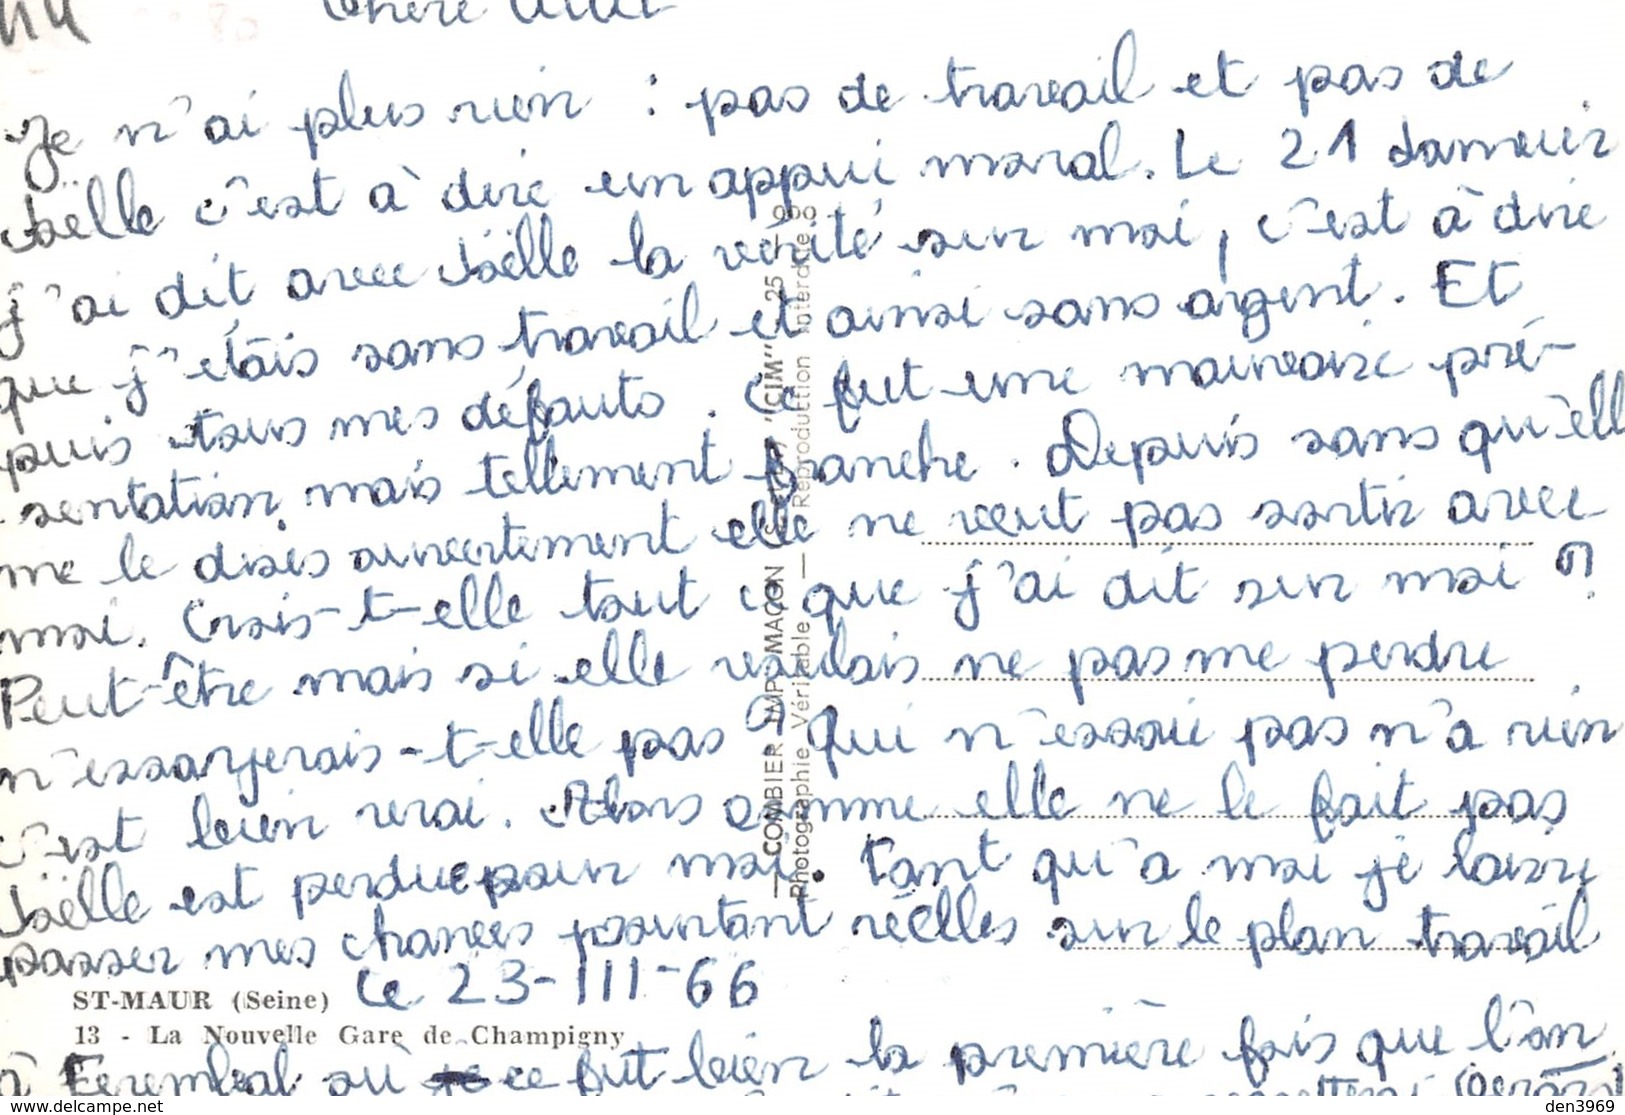 44 Chère
Je n'ai plus rien : pas de travail et pas de
Joëlle c'est à dire un appui moral. Le 21 damenir
j'ai dit avec Joëlle la vérité sur moi, c'est à dire
que j'étais sans travail et ainsi sans argent. Et
puis tous mes défauts. Ce fut une mauvaise pré-
sentation, mais tellement franche. Depuis sans qu'ell
me le dises ouvertement elle ne veut pas sortir avec
moi. Crois-t-elle tout ce que j'ai dit sur moi ?
Peut-être mais si elle voulais ne pas me perdre
n'essayerais-t-elle pas ? Qui n'essaie pas n'a rien
c'est bien vrai. Alors comme elle ne le fait pas
Joëlle est perdue pour moi. Tant qu'à moi je laisse
passer mes chances pourtant réelles sur le plan travail
Le 23-III-66
ST-MAUR (Seine)
13 - La Nouvelle Gare de Champigny
à où ce fut bien la première fois que l'on
COMBIER IMP. MACON "CIM"
Photographie Véritable — Reproduction Interdite
www.delcampe.net
den3969